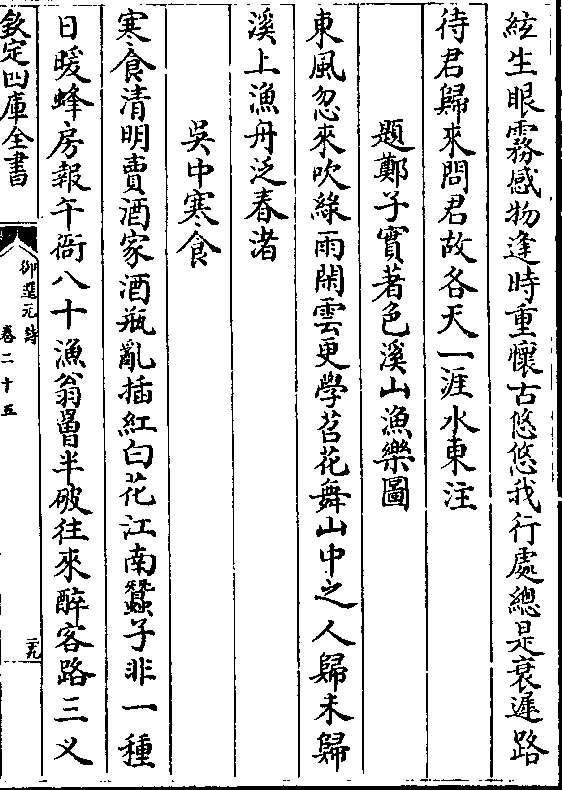 絃生眼霧感物逢時重懷古悠悠我行處總是衰遲路
待君歸來問君故各天一涯水東注
題鄭子實著色溪山漁樂圖
東風忽來吹綠雨閑雲更學苕花舞山中之人歸未歸
溪上漁舟泛春渚
吳中寒食
寒食清明賣酒家酒瓶亂插紅白花江南蠶子非一種
日暖蜂房報午衙八十漁翁罾半破往來醉客路三义
欽定四庫全書
御選元詩
卷二十五